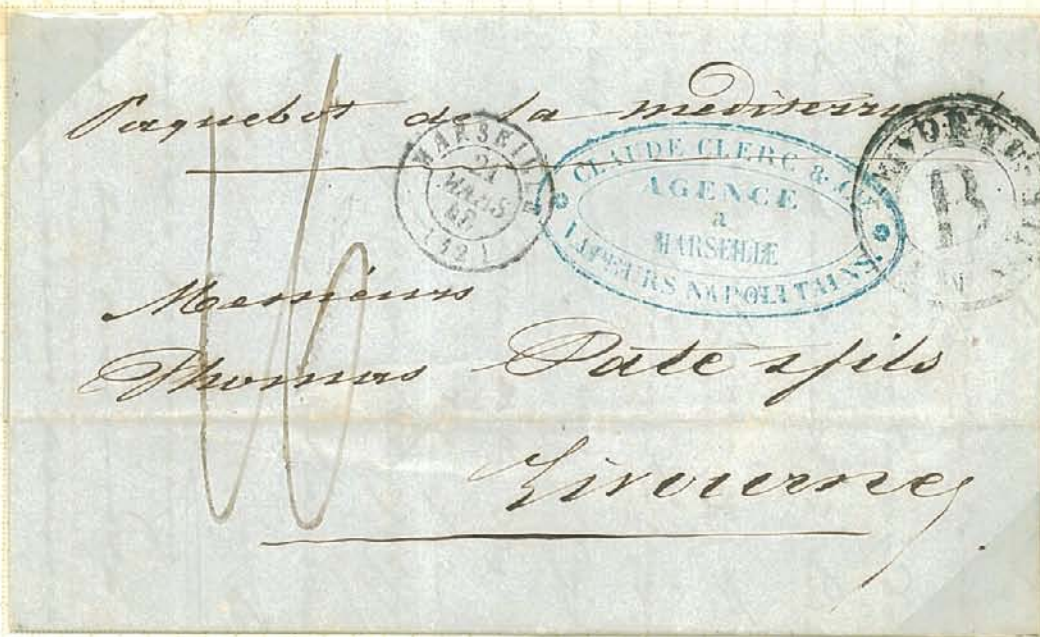 Paquebot de la mediterrannée
MARSEILLE
21
MARS
(12)
CLAUDE CLERC & CIE
AGENCE
a
MARSEILLE
VAPEURS NAPOLITAINS
B
16
Messieurs
Thomas Pate & fils
Livourne